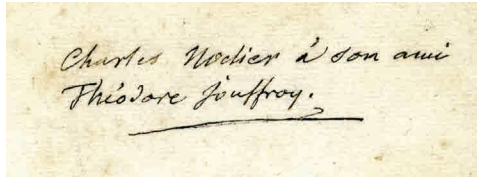 Charles Nodier à son ami
Théodore Jouffroy.